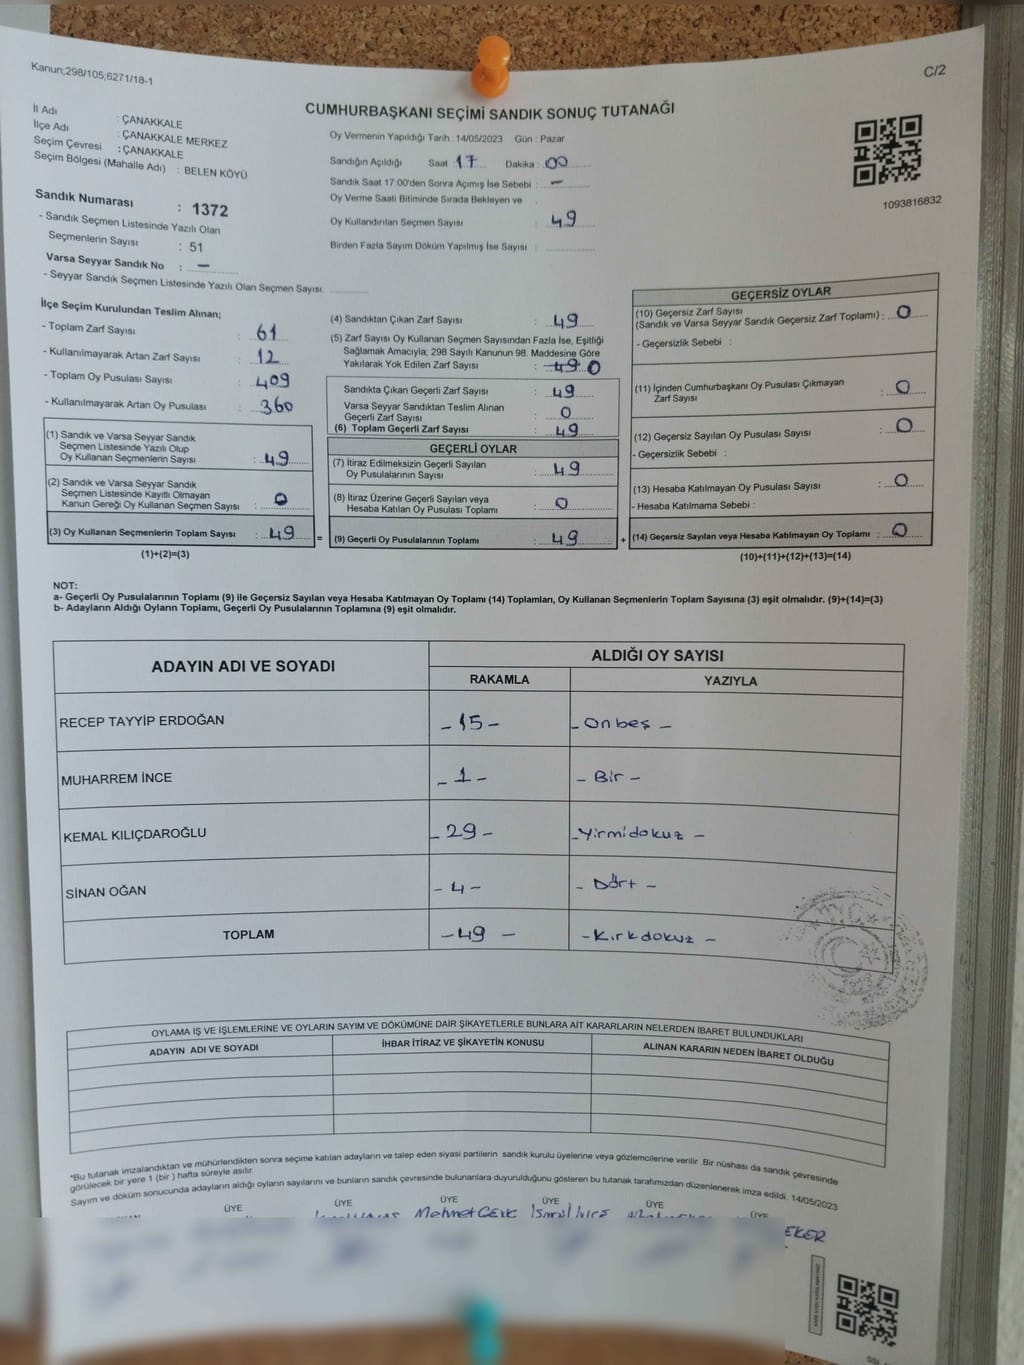 Kanun;298/105;6271/18-1
C/2
CUMHURBAŞKANI SEÇİMİ SANDIK SONUÇ TUTANAĞI
İl Adı : ÇANAKKALE
İlçe Adı : ÇANAKKALE MERKEZ
Seçim Çevresi : ÇANAKKALE
Seçim Bölgesi (Mahalle Adı) : BELEN KÖYÜ
Sandık Numarası : 1372
- Sandık Seçmen Listesinde Yazılı Olan
Seçmenlerin Sayısı : 51
Varsa Seyyar Sandık No : –
- Seyyar Sandık Seçmen Listesinde Yazılı Olan Seçmen Sayısı:
Oy Vermenin Yapıldığı Tarih : 14/05/2023 Gün : Pazar
Sandığın Açıldığı Saat : 17 Dakika : 00
Sandık Saat 17:00'den Sonra Açımış İse Sebebi : –
Oy Verme Saati Bitiminde Sırada Bekleyen ve
Oy Kullandırılan Seçmen Sayısı : 49
Birden Fazla Sayım Döküm Yapılmış İse Sayısı :
1093816832
İlçe Seçim Kurulundan Teslim Alınan;
- Toplam Zarf Sayısı : 61
- Kullanılmayarak Artan Zarf Sayısı : 12
- Toplam Oy Pusulası Sayısı : 409
- Kullanılmayarak Artan Oy Pusulası : 360
(1) Sandık ve Varsa Seyyar Sandık
Seçmen Listesinde Yazılı Olup
Oy Kullanan Seçmenlerin Sayısı : 49
(2) Sandık ve Varsa Seyyar Sandık
Seçmen Listesinde Kayıtlı Olmayan
Kanun Gereği Oy Kullanan Seçmen Sayısı : 0
(3) Oy Kullanan Seçmenlerin Toplam Sayısı : 49
(1)+(2)=(3)
=
(4) Sandıktan Çıkan Zarf Sayısı : 49
(5) Zarf Sayısı Oy Kullanan Seçmen Sayısından Fazla İse, Eşitliği
Sağlamak Amacıyla; 298 Sayılı Kanunun 98. Maddesine Göre
Yakılarak Yok Edilen Zarf Sayısı : 49 0
Sandıkta Çıkan Geçerli Zarf Sayısı : 49
Varsa Seyyar Sandıktan Teslim Alınan
Geçerli Zarf Sayısı : 0
(6) Toplam Geçerli Zarf Sayısı : 49
GEÇERLİ OYLAR
(7) İtiraz Edilmeksizin Geçerli Sayılan
Oy Pusulalarının Sayısı : 49
(8) İtiraz Üzerine Geçerli Sayılan veya
Hesaba Katılan Oy Pusulası Toplamı : 0
(9) Geçerli Oy Pusulalarının Toplamı : 49
+
GEÇERSİZ OYLAR
(10) Geçersiz Zarf Sayısı
(Sandık ve Varsa Seyyar Sandık Geçersiz Zarf Toplamı) : 0
- Geçersizlik Sebebi :
(11) İçinden Cumhurbaşkanı Oy Pusulası Çıkmayan
Zarf Sayısı : 0
(12) Geçersiz Sayılan Oy Pusulası Sayısı : 0
- Geçersizlik Sebebi :
(13) Hesaba Katılmayan Oy Pusulası Sayısı : 0
- Hesaba Katılmama Sebebi :
(14) Geçersiz Sayılan veya Hesaba Katılmayan Oy Toplamı : 0
(10)+(11)+(12)+(13)=(14)
NOT:
a- Geçerli Oy Pusulalarının Toplamı (9) ile Geçersiz Sayılan veya Hesaba Katılmayan Oy Toplamı (14) Toplamları, Oy Kullanan Seçmenlerin Toplam Sayısına (3) eşit olmalıdır. (9)+(14)=(3)
b- Adayların Aldığı Oyların Toplamı, Geçerli Oy Pusulalarının Toplamına (9) eşit olmalıdır.
ADAYIN ADI VE SOYADI ALDIĞI OY SAYISI
RAKAMLA YAZIYLA
RECEP TAYYİP ERDOĞAN - 15 - - Onbeş -
MUHARREM İNCE - 1 - - Bir -
KEMAL KILIÇDAROĞLU - 29 - - Yirmidokuz -
SİNAN OĞAN - 4 - - Dört -
TOPLAM - 49 - - Kırkdokuz -
OYLAMA İŞ VE İŞLEMLERİNE VE OYLARIN SAYIM VE DÖKÜMÜNE DAİR ŞİKAYETLERLE BUNLARA AİT KARARLARIN NELERDEN İBARET BULUNDUKLARI
ADAYIN ADI VE SOYADI İHBAR İTİRAZ VE ŞİKAYETİN KONUSU ALINAN KARARIN NEDEN İBARET OLDUĞU
*Bu tutanak imzalandıktan ve mühürlendikten sonra seçime katılan adayların ve talep eden siyasi partilerin sandık kurulu üyelerine veya gözlemcilerine verilir .Bir nüshası da sandık çevresinde
görülecek bir yere 1 (bir ) hafta süreyle asılır.
Sayım ve döküm sonucunda adayların aldığı oyların sayılarını ve bunların sandık çevresinde bulunanlara duyurulduğunu gösteren bu tutanak tarafımızdan düzenlenerek imza edildi. 14/05/2023
ÜYE ÜYE ÜYE ÜYE ÜYE ÜYE
Mehmet
EKER